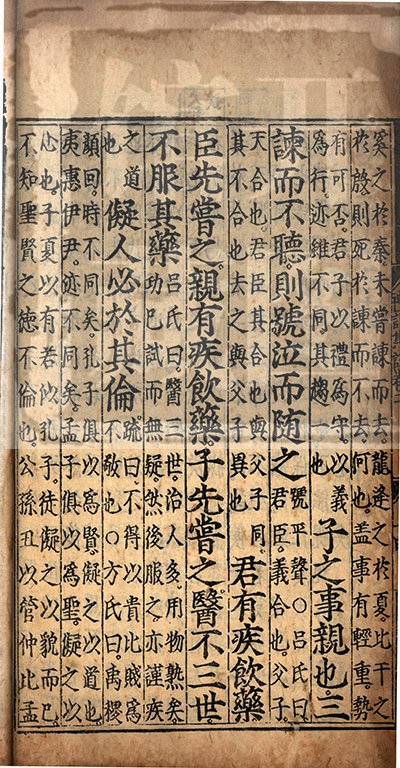 奚之於秦未嘗諫而去龍逄之於夏比干之
於殷則死於諫而不去何也盖事有輕重勢
有可否君子以禮爲守以義
爲行迹雖不同其趨一也
子之事親也三
諫而不聽則號泣而随之
號平聲○呂氏曰
君臣義合也父子
天合也君臣其合也與父子同
其不合也去之與父子異也
君有疾飲藥
臣先嘗之親有疾飲藥子先嘗之醫不三世
不服其藥
呂氏曰醫三世治人多用物熟矣
功已試而無疑然後服之亦謹疾
之道
也
儗人必於其倫
疏曰不得以貴比賤爲
不敬也○方氏曰禹稷
顔回時不同矣孔子俱以爲賢儗之以道也
夷惠伊尹迹不同矣孟子俱以爲聖儗之以
心也子夏以有若似孔子徒儗之以貌而已
不知聖賢之德不倫也公孫丑以管仲比孟